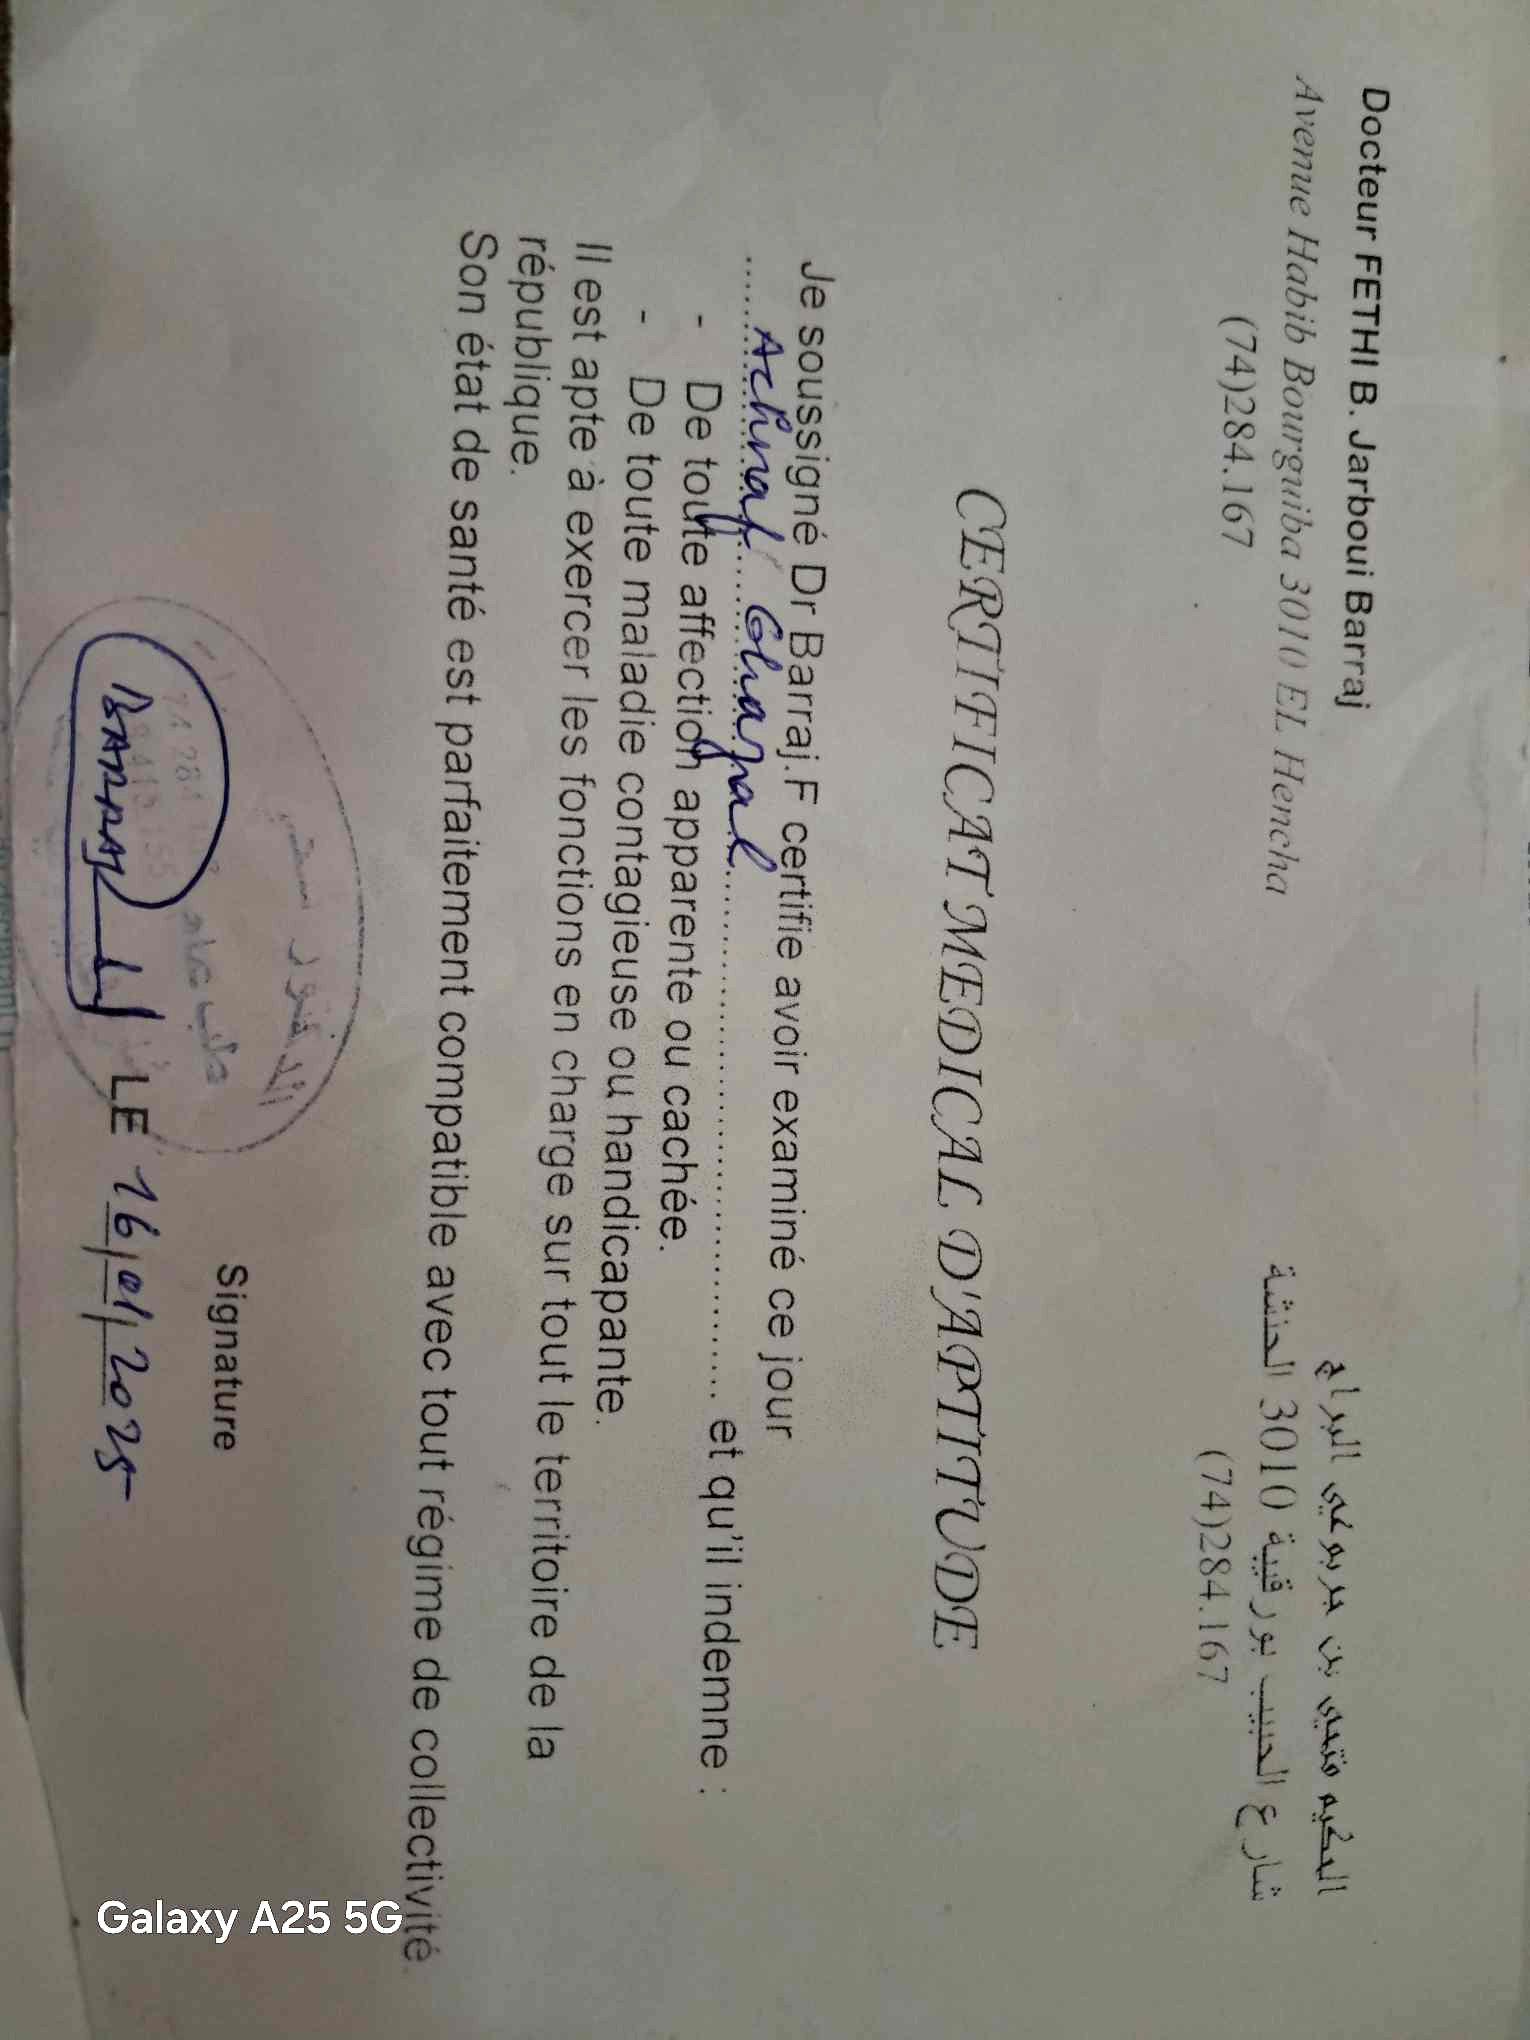 Docteur FETHI B. Jarboui Barraj
Avenue Habib Bourguiba 3010 EL Hencha
(74)284.167
الحكيم فتحي بن جربوعي البراج
شارع الحبيب بورقيبة 3010 الحنشة
(74)284.167
CERTIFICAT MEDICAL D'APTITUDE
Je soussigné Dr Barraj.F certifie avoir examiné ce jour
Achraf Ghazal et qu'il indemne :
- De toute affection apparente ou cachée.
- De toute maladie contagieuse ou handicapante.
Il est apte à exercer les fonctions en charge sur tout le territoire de la
république.
Son état de santé est parfaitement compatible avec tout régime de collectivité
Signature
LE 16/01/2025
BARRAJ
Galaxy A25 5G